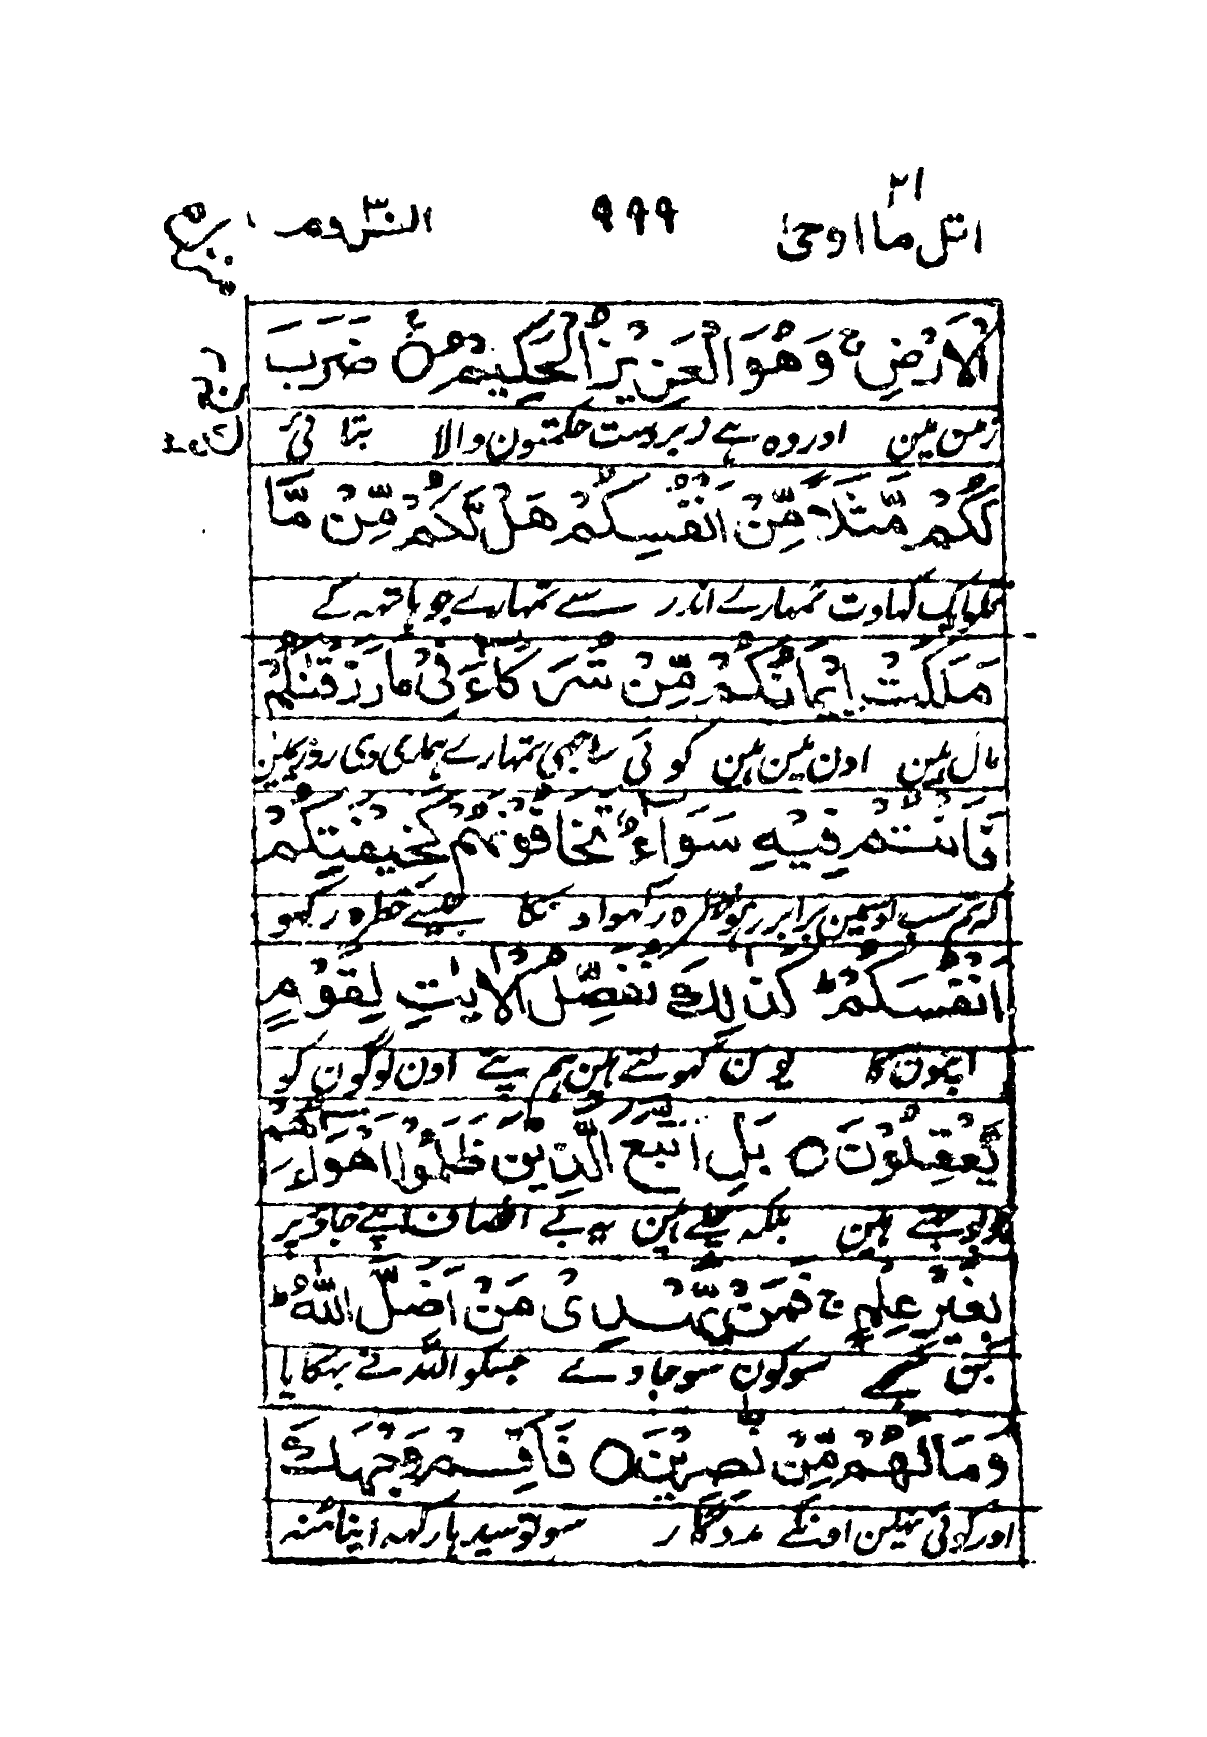 اتل ما اوحی ٢١ ٩٩٩ الروم ٣٠
الْاَرْضِ ۚ وَهُوَ الْعَزِيْزُ الْحَكِيْمُ ○ ضَرَبَ
زمین مین اور وہ ہے زبردست حکمتون والا بتائی
لَكُمْ مَّثَلًا مِّنْ اَنْفُسِكُمْ هَلْ لَّكُمْ مِّنْ مَّا
تمکو ایک کہاوت تمہارے اندر سے تمہارے جو ہاتہہ کے
مَلَكَتْ اَيْمَانُكُمْ مِّنْ شُرَكَآءَ فِيْ مَا رَزَقْنٰكُمْ
مال ہین اون مین ہین کوئی ساجہی تمہارے ہماری دی روزی مین
فَاَنْتُمْ فِيْهِ سَوَآءٌ تَخَافُوْنَهُمْ كَخِيْفَتِكُمْ
کہ تم سب اوسمین برابر ہو خطرہ رکہو اونکا جیسے خطرہ رکہو
اَنْفُسَكُمْ ۭ كَذٰلِكَ نُفَصِّلُ الْاٰيٰتِ لِقَوْمٍ
اپنون کا یون کہولتے ہین ہم پتے اون لوگون کو
يَّعْقِلُوْنَ ○ بَلِ اتَّبَعَ الَّذِيْنَ ظَلَمُوْٓا اَهْوَآءَهُمْ
جو بوجہتے ہین بلکہ چلے ہین یہ بے انصاف اپنے چاؤ پر
بِغَيْرِ عِلْمٍ ۚ فَمَنْ يَّهْدِيْ مَنْ اَضَلَّ اللّٰهُ ۭ
بن سمجہے سو کون سوجاوے جسکو اللہ نے بہکایا
وَمَا لَهُمْ مِّنْ نّٰصِرِيْنَ ○ فَاَقِمْ وَجْهَكَ
اور کوئی نہین اونکے مددگار سو تو سیدہا رکہہ اپنا منہہ